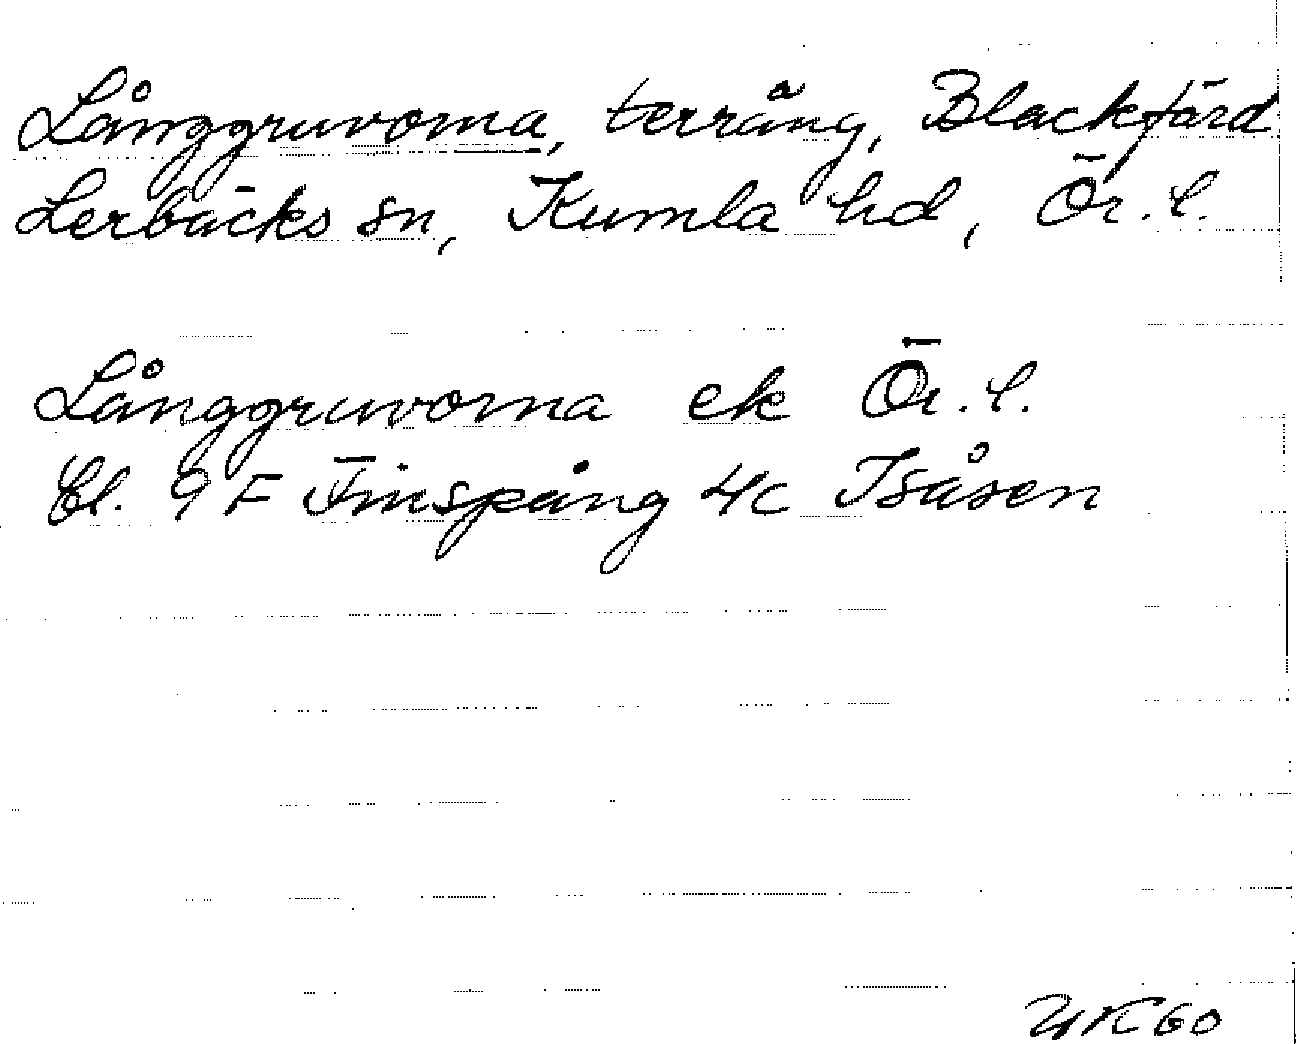 Långgruvorna, terräng, Blackfärd
Lerbäcks sn, Kumla hd, Ör. l.
Långgruvorna ek Ör. l.
Bl. 9 F Finspång 4c Isåsen